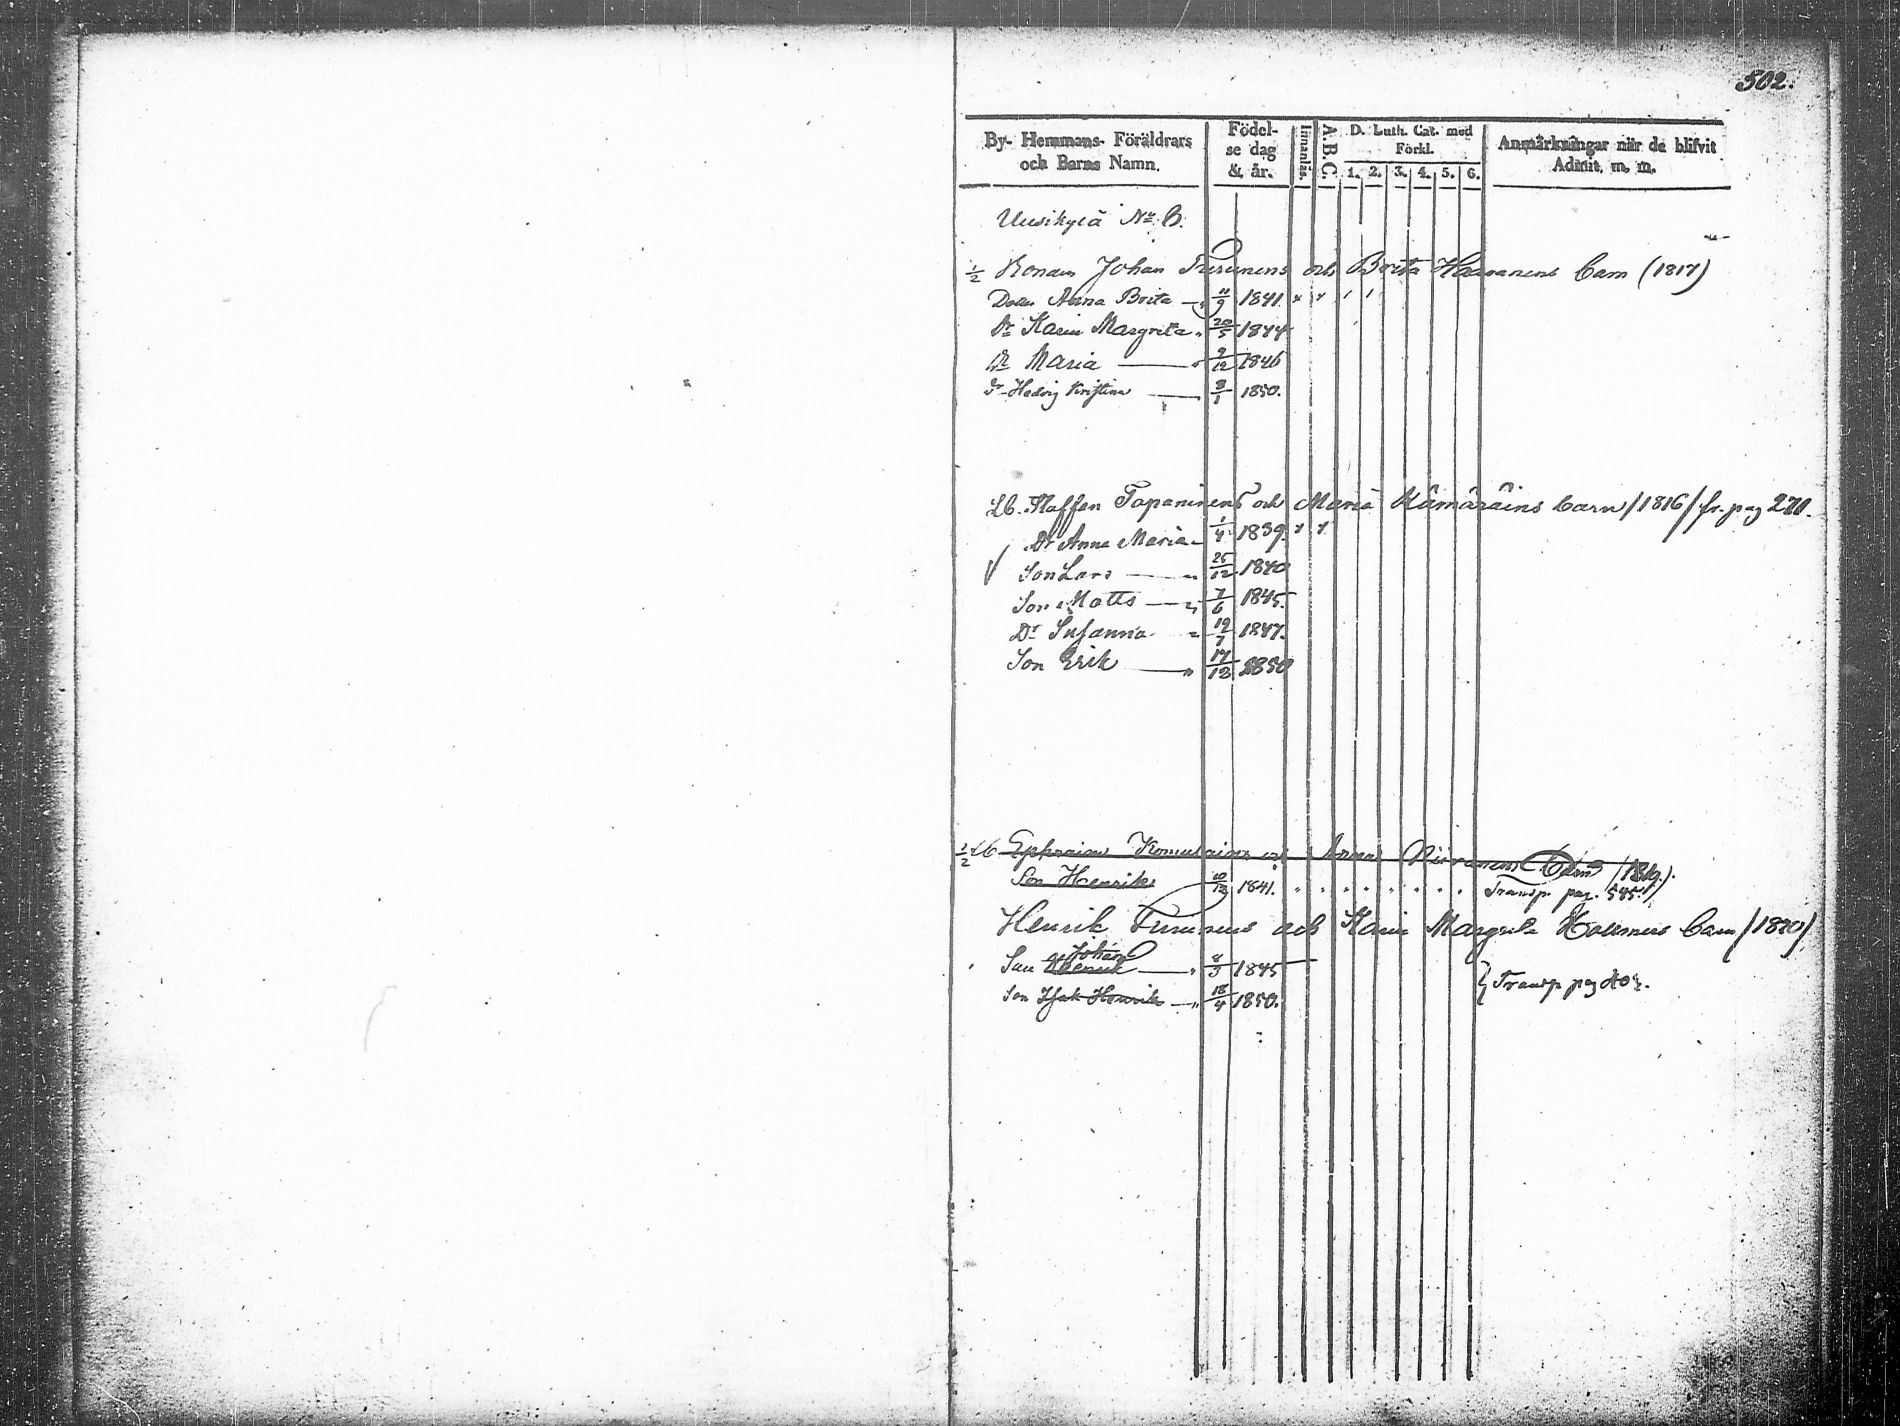 502.
By- Hemmans- Föräldrars och Barns Namn.
Födel-se dag & år.
Innanläs.
A. B. C.
D. Luth. Cat. med Förkl.
1. 2. 3. 4. 5. 6.
Anmärkningar när de blifvit Admit. m. m.
Uusikylä No 6.
1/2 Bonden Johan Turunens och Brita Barn (1817)
Dotter Anna Brita 11/9 1841.
Dr Karin Margreta 20/5 1844
Dr Maria 9/12 1846
Dr Hedvig Kristina 8/1 1850.
Lb. Staffan Tapaninens och Maria Kämäräins barn /1816/ fr. pag 270.
Dr Anna Maria 1/4 1839.
Son Lars 25/12 1840
Son Matts 7/6 1845.
Dr Susanna 19/7 1847.
Son Erik 17/12 1850
1/2 Lb Ephraim Komulains och Anna Barn
Son Henrik 10/12 1841. Transp. pag. 545.
Henrik Turunens och Karin Margreta Barn /1820/
Son Johan 8/3 1845
Son Isak Henrik 18/4 1850. Transp pag